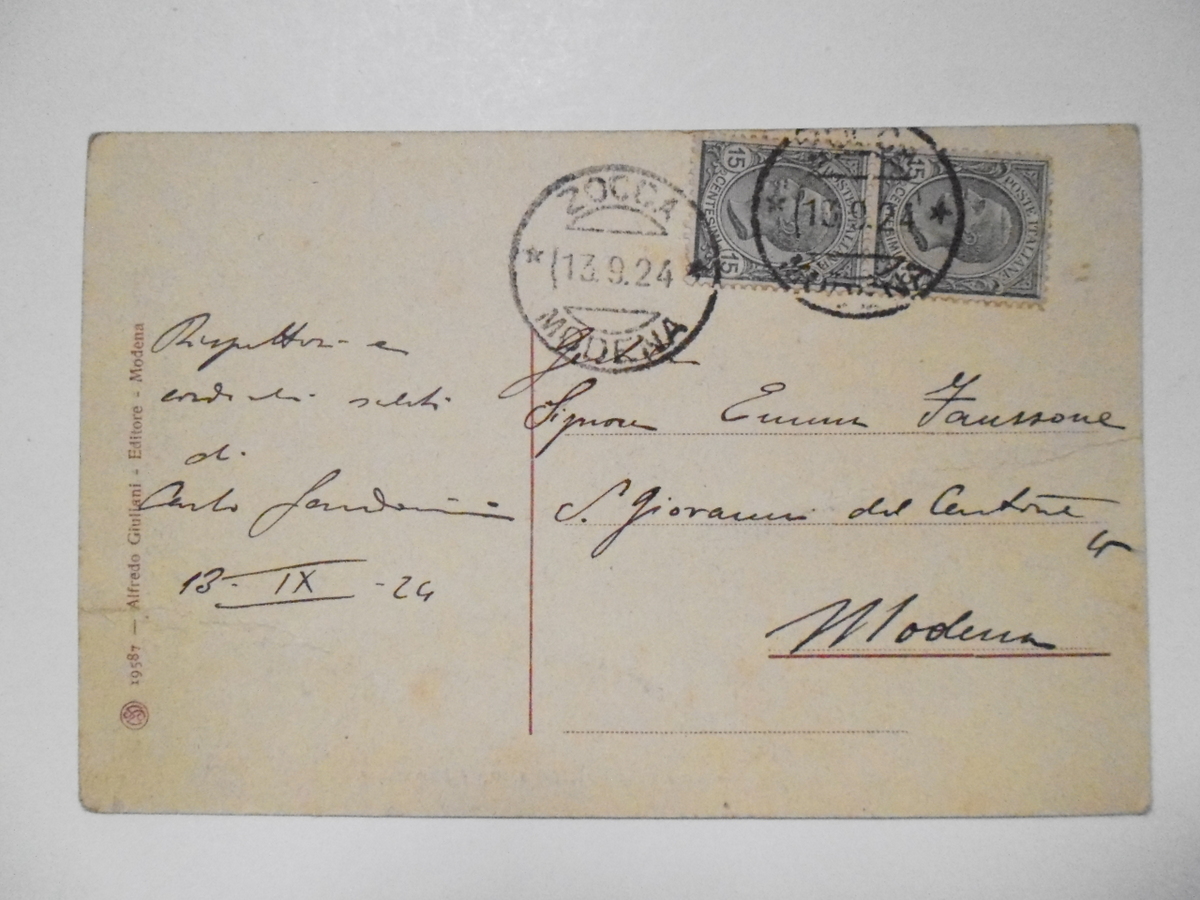 ZOCCA
(13.9.24
MODENA
15
CENTESIMI
15
POSTE ITALIANE
15
POSTE ITALIANE
13.9.24
MODENA
Rispettosi e
cordiali saluti
di
Carlo
13 - IX - 24
Signora Emma Faussone
S. Giovanni del Cantone
Modena
19587 — Alfredo Giuliani - Editore - Modena